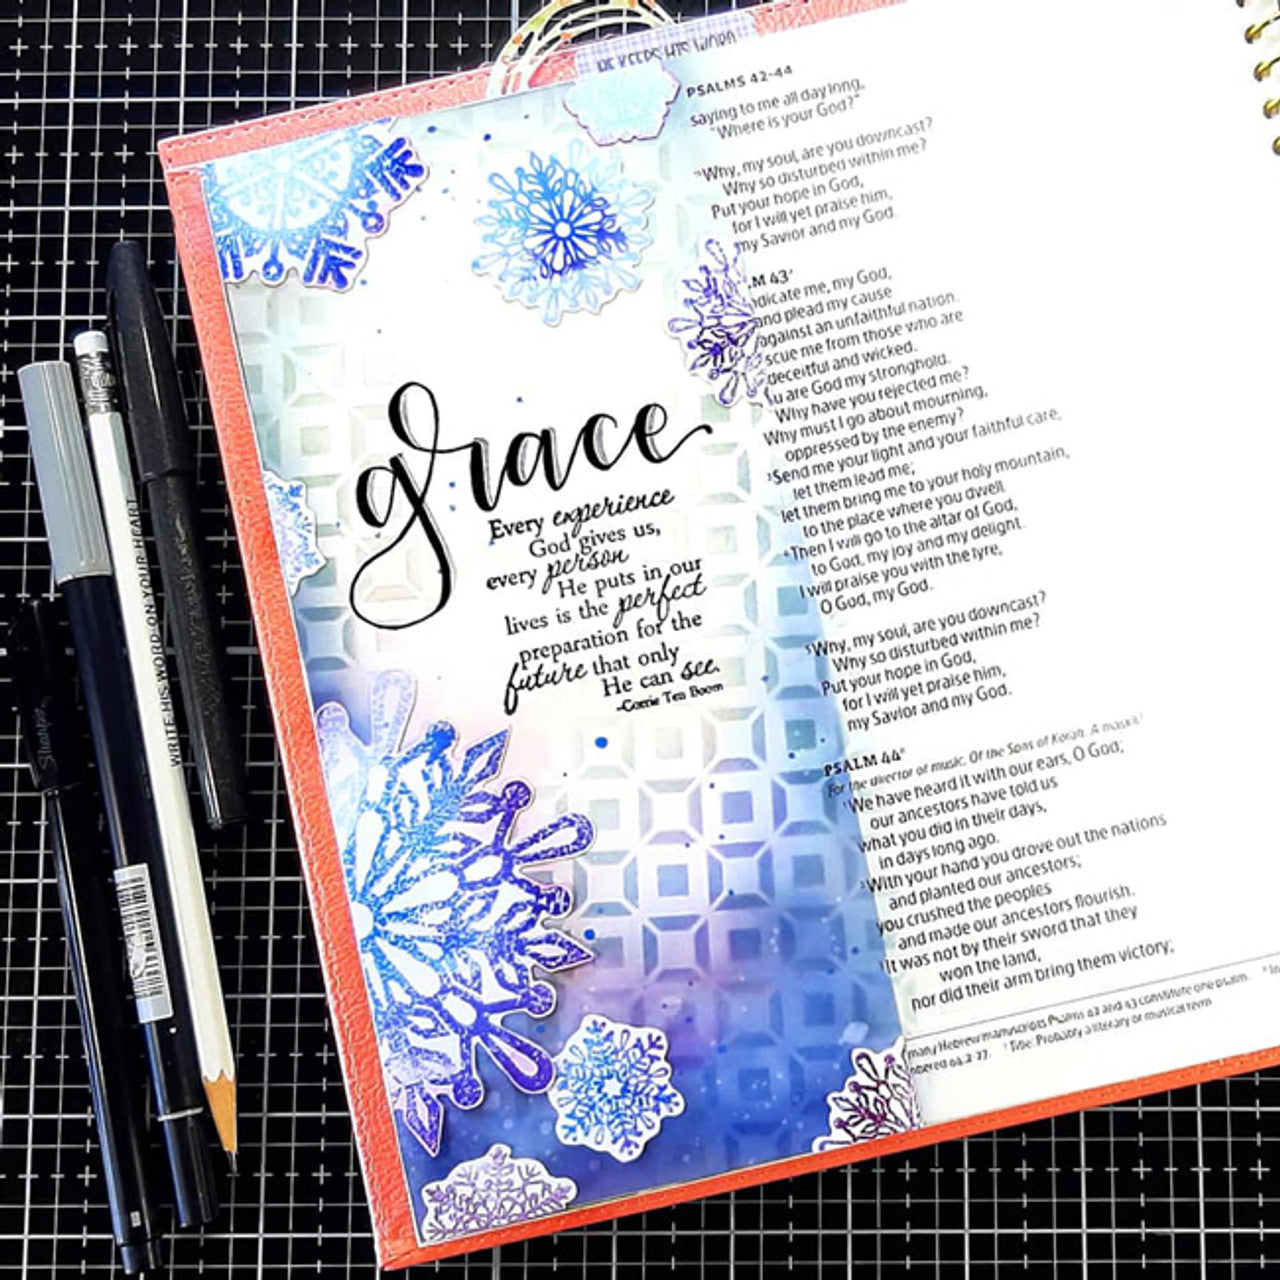 HE KEEPS HIS WORD
grace
Every experience
God gives us,
every person
He puts in our
lives is the perfect
preparation for the
future that only
He can see.
-Corrie Ten Boom
PSALMS 42-44
saying to me all day long,
"Where is your God?"
Why, my soul, are you downcast?
Why so disturbed within me?
Put your hope in God,
for I will yet praise him,
my Savior and my God.
M 43
dicate me, my God,
and plead my cause
against an unfaithful nation.
scue me from those who are
deceitful and wicked.
u are God my stronghold.
Why have you rejected me?
Why must I go about mourning,
oppressed by the enemy?
³Send me your light and your faithful care,
let them lead me;
let them bring me to your holy mountain,
to the place where you dwell.
⁴Then I will go to the altar of God,
to God, my joy and my delight.
I will praise you with the lyre,
O God, my God.
⁵Why, my soul, are you downcast?
Why so disturbed within me?
Put your hope in God,
for I will yet praise him,
my Savior and my God.
PSALM 44
For the director of music. Of the Sons of Korah. A maskil.
¹We have heard it with our ears, O God;
our ancestors have told us
what you did in their days,
in days long ago.
²With your hand you drove out the nations
and planted our ancestors;
you crushed the peoples
and made our ancestors flourish.
It was not by their sword that they
won the land,
nor did their arm bring them victory;
many Hebrew manuscripts Psalms 42 and 43 constitute one psalm.
mbered 44:2-27. Title: Probably a literary or musical term
WRITE HIS WORD ON YOUR HEART
Sharpie